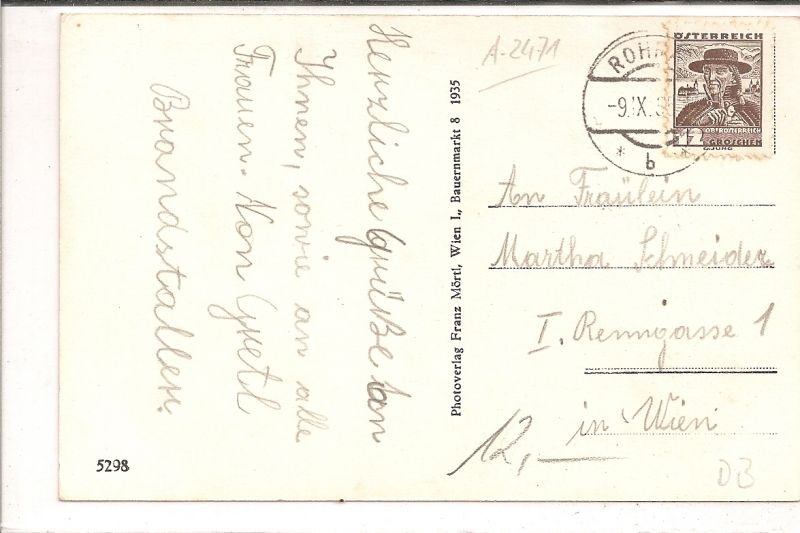 Herzliche Grüße an
Ihnen, sowie an alle
Frauen. Von Gretl
Brandstaller.
5298
Photoverlag Franz Mörtl, Wien I., Bauernmarkt 8 1935
A-2471
ROHR
-9.IX.3
* b *
ÖSTERREICH
OBERÖSTERREICH
12 GROSCHEN
G.JUNG
An Fräulein
Martha Schneider
I. Renngasse 1
in Wien
12,-
DB